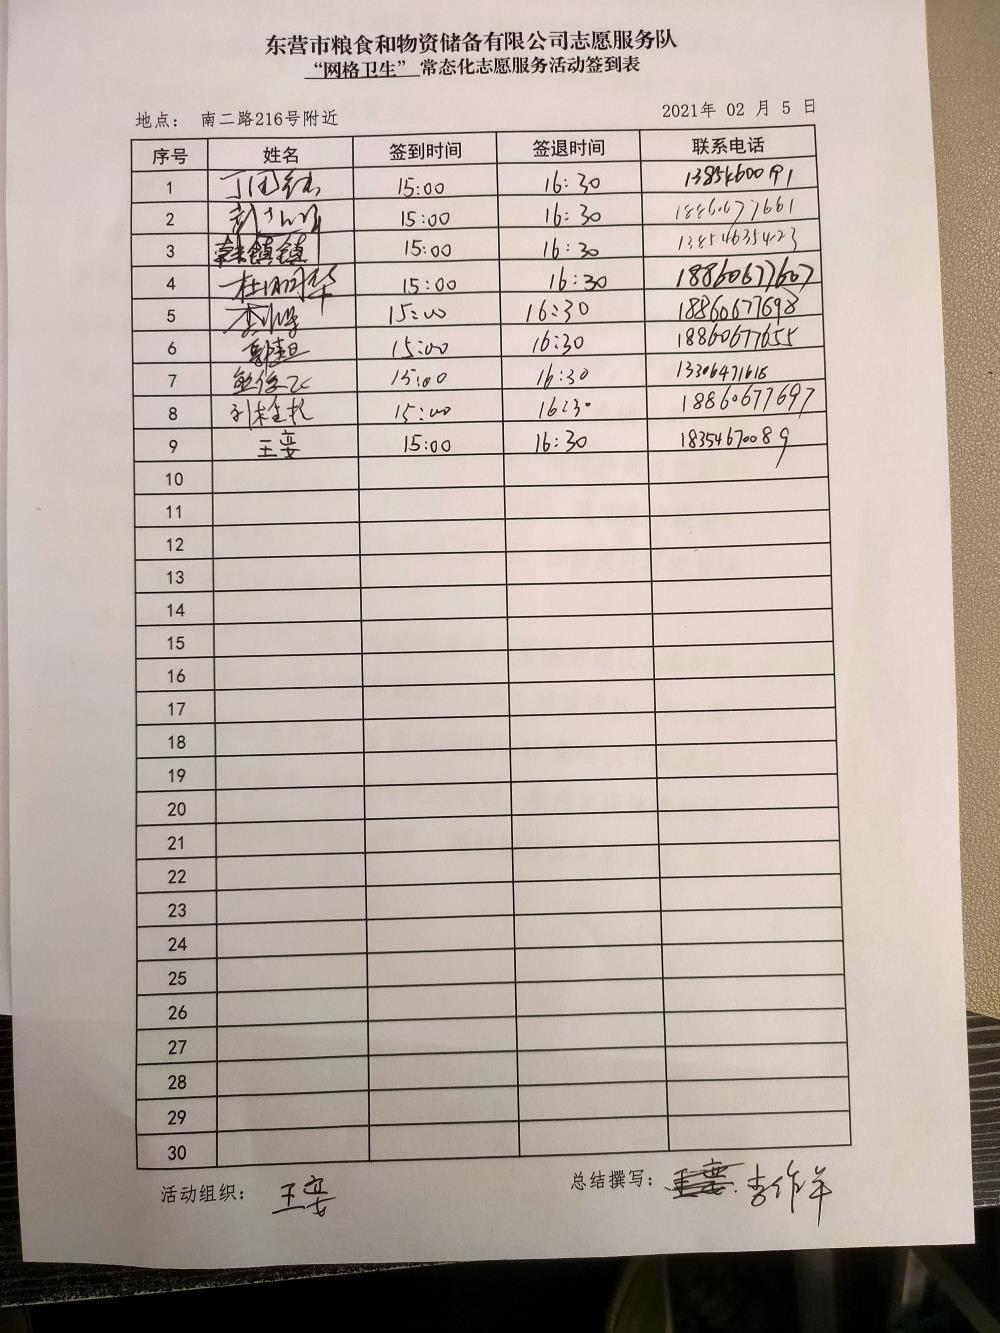 东营市粮食和物资储备有限公司志愿服务队
“网格卫生” 常态化志愿服务活动签到表
地点： 南二路216号附近 2021年 02 月 5 日
序号 姓名 签到时间 签退时间 联系电话
1 15:00 16:30
2 15:00 16:30 18860677661
3 韩镇镇 15:00 16:30 13854635423
4 杜明华 15:00 16:30 18860677607
5 15:00 16:30 18860677698
6 15:00 16:30 18860677655
7 15:00 16:30 13306471618
8 15:00 16:30 18860677697
9 王娈 15:00 16:30 18354670089
10
11
12
13
14
15
16
17
18
19
20
21
22
23
24
25
26
27
28
29
30
活动组织： 王娈 总结撰写： 李作羊